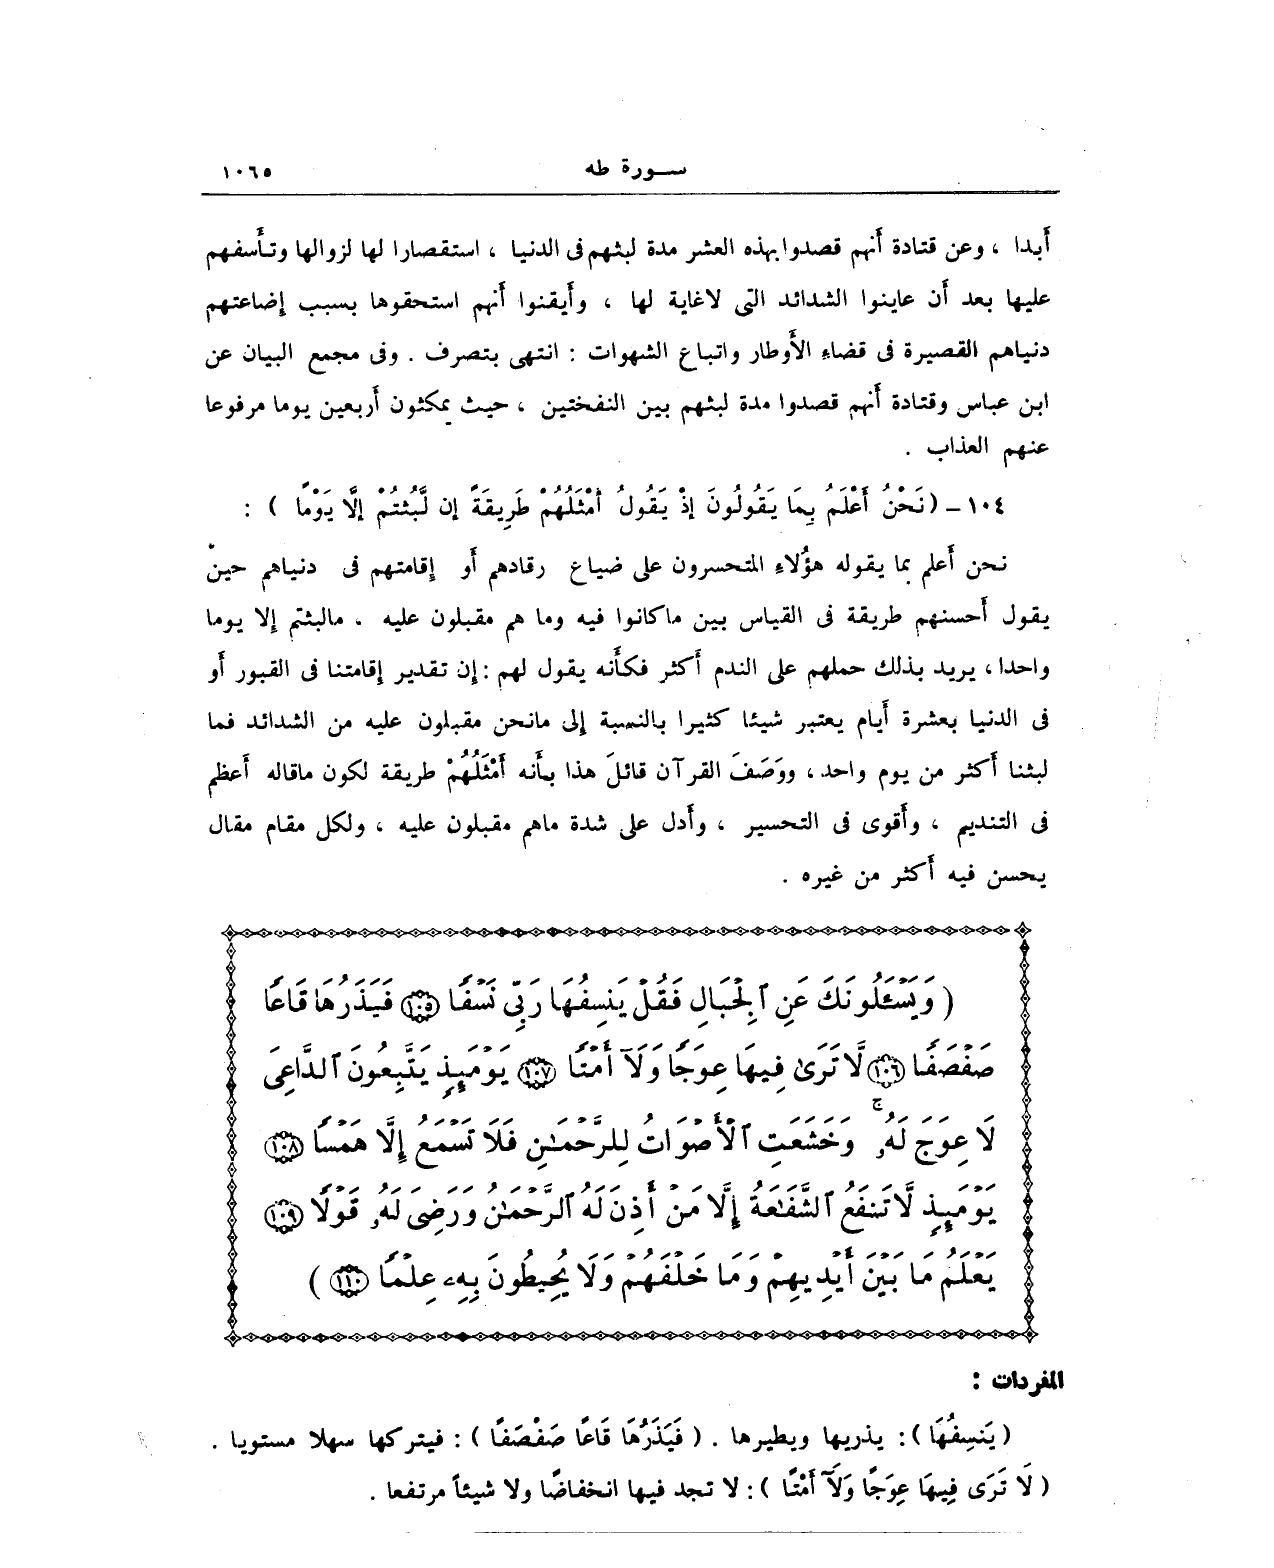 سورة طه ١٠٦٥
أبدا ، وعن قتادة أنهم قصدوا بهذه العشر مدة لبثهم فى الدنيا ، استقصارا لها لزوالها وتأسفهم
عليها بعد أن عاينوا الشدائد التى لاغاية لها ، وأيقنوا أنهم استحقوها بسبب إضاعتهم
دنياهم القصيرة فى قضاء الأوطار واتباع الشهوات : انتهى بتصرف . وفى مجمع البيان عن
ابن عباس وقتادة أنهم قصدوا مدة لبثهم بين النفختين ، حيث يمكثون أربعين يوما مرفوعا
عنهم العذاب .
١٠٤ ــ ( نَحْنُ أَعْلَمُ بِمَا يَقُولُونَ إِذْ يَقُولُ أَمْثَلُهُمْ طَرِيقَةً إِن لَّبِثْتُمْ إِلَّا يَوْمًا ) :
نحن أعلم بما يقوله هؤلاء المتحسرون على ضياع رقادهم أو إقامتهم فى دنياهم حين
يقول أحسنهم طريقة فى القياس بين ماكانوا فيه وما هم مقبلون عليه . مالبثتم إلا يوما
واحدا ، يريد بذلك حملهم على الندم أكثر فكأنه يقول لهم : إن تقدير إقامتنا فى القبور أو
فى الدنيا بعشرة أيام يعتبر شيئا كثيرا بالنسبة إلى مانحن مقبلون عليه من الشدائد فما
لبثنا أكثر من يوم واحد ، ووَصَفَ القرآن قائلَ هذا بأنه أَمْثَلُهُمْ طريقة لكون ماقاله أعظم
فى التنديم ، وأقوى فى التحسير ، وأدل على شدة ماهم مقبلون عليه ، ولكل مقام مقال
يحسن فيه أكثر من غيره .
( وَيَسْـَٔلُونَكَ عَنِ ٱلْجِبَالِ فَقُلْ يَنسِفُهَا رَبِّى نَسْفًا ١٠٥ فَيَذَرُهَا قَاعًا
صَفْصَفًا ١٠٦ لَّا تَرَىٰ فِيهَا عِوَجًا وَلَآ أَمْتًا ١٠٧ يَوْمَئِذٍ يَتَّبِعُونَ ٱلدَّاعِىَ
لَا عِوَجَ لَهُۥ ۚ وَخَشَعَتِ ٱلْأَصْوَاتُ لِلرَّحْمَـٰنِ فَلَا تَسْمَعُ إِلَّا هَمْسًا ١٠٨
يَوْمَئِذٍ لَّا تَنفَعُ ٱلشَّفَـٰعَةُ إِلَّا مَنْ أَذِنَ لَهُ ٱلرَّحْمَـٰنُ وَرَضِىَ لَهُۥ قَوْلًا ١٠٩
يَعْلَمُ مَا بَيْنَ أَيْدِيهِمْ وَمَا خَلْفَهُمْ وَلَا يُحِيطُونَ بِهِۦ عِلْمًا ١١٠ )
المفردات :
( يَنسِفُهَا ) : يذريها ويطيرها . ( فَيَذَرُهَا قَاعًا صَفْصَفًا ) : فيتركها سهلا مستويا .
( لَا تَرَى فِيهَا عِوَجًا وَلَآ أَمْتًا ) : لا تجد فيها انخفاضًا ولا شيئاً مرتفعا .